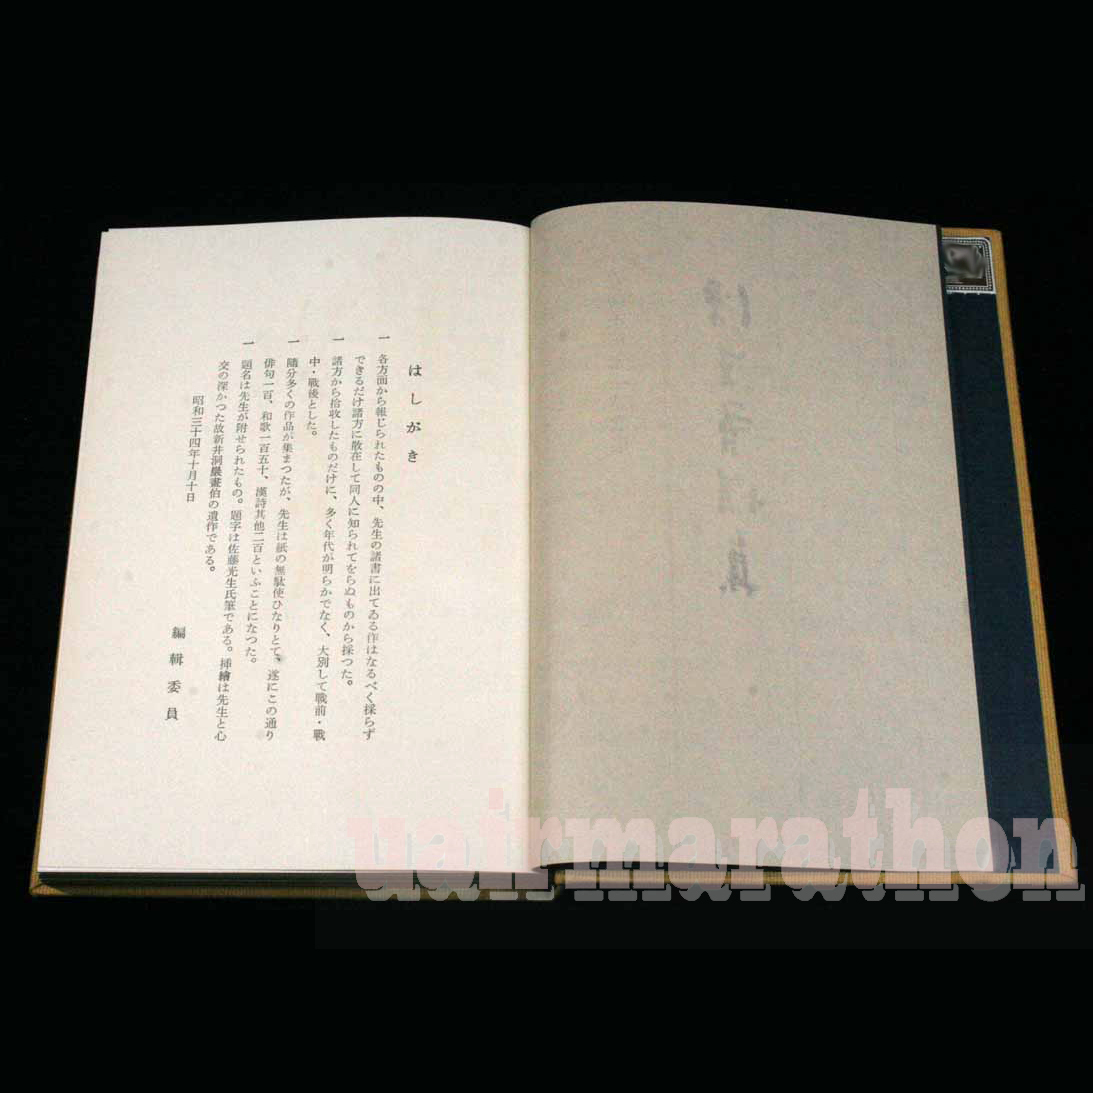 はしがき
一 各方面から報じられたものの中、先生の諸書に出てゐる作はなるべく採らず
できるだけ諸方に散在して同人に知られてをらぬものから採つた。
一 諸方から拾収したものだけに、多く年代が明らかでなく、大別して戰前・戰
中・戰後とした。
一 隨分多くの作品が集まつたが、先生は紙の無駄使ひなりとて、遂にこの通り
俳句一百、和歌一百五十、漢詩其他二百といふことになつた。
一 題名は先生が附せられたもの。題字は佐藤光生氏筆である。挿繪は先生と心
交の深かつた故新井洞巖畫伯の遺作である。
昭和三十四年十月十日
編輯委員
uairmarathon